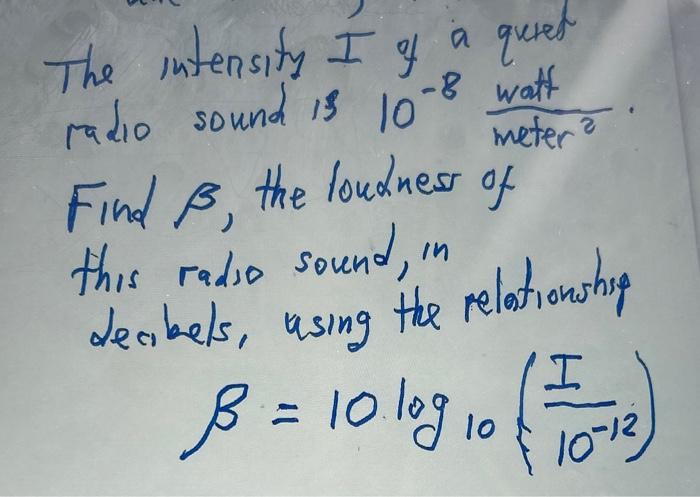 The intensity I of a quiet
radio sound is 10⁻⁸ watt/meter².
Find β, the loudness of
this radio sound, in
decibels, using the relationship
β = 10 log₁₀ (I/10⁻¹²)